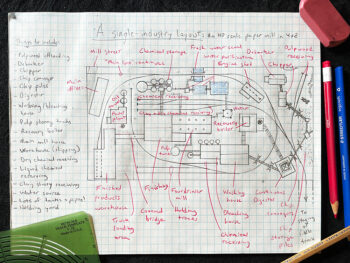 A single-industry layout: an HO scale paper mill in 4x8
Things to include:
- Pulpwood offloading
- Debarker
- Chipper
- Chip conveyor
- Chip piles
- Digester
- Washing/bleaching house
- Pulp storage tanks
- Recovery boiler
- Main mill house
- Warehouse (shipping)
- Dry chemical receiving
- Liquid chemical receiving
- Clay slurry receiving
- Water source
- Lots of tanks & pipes!
- Holding yard
Mill street
Chemical storage
Fresh water used
Debarker
Pulpwood receiving
Engine shed
Chipper
Main office
Power plant
Chemical receiving
Clay slurry receiving
Recovery boiler
Water
Pulp tanks
Finished products warehouse
Finishing
Fourdrinier mill
Washing house
Continuous Digester
Truck loading area
Covered bridge
Holding tracks
Bleaching house
Chip conveyors
Chip storage piles
Chemical receiving
To staging